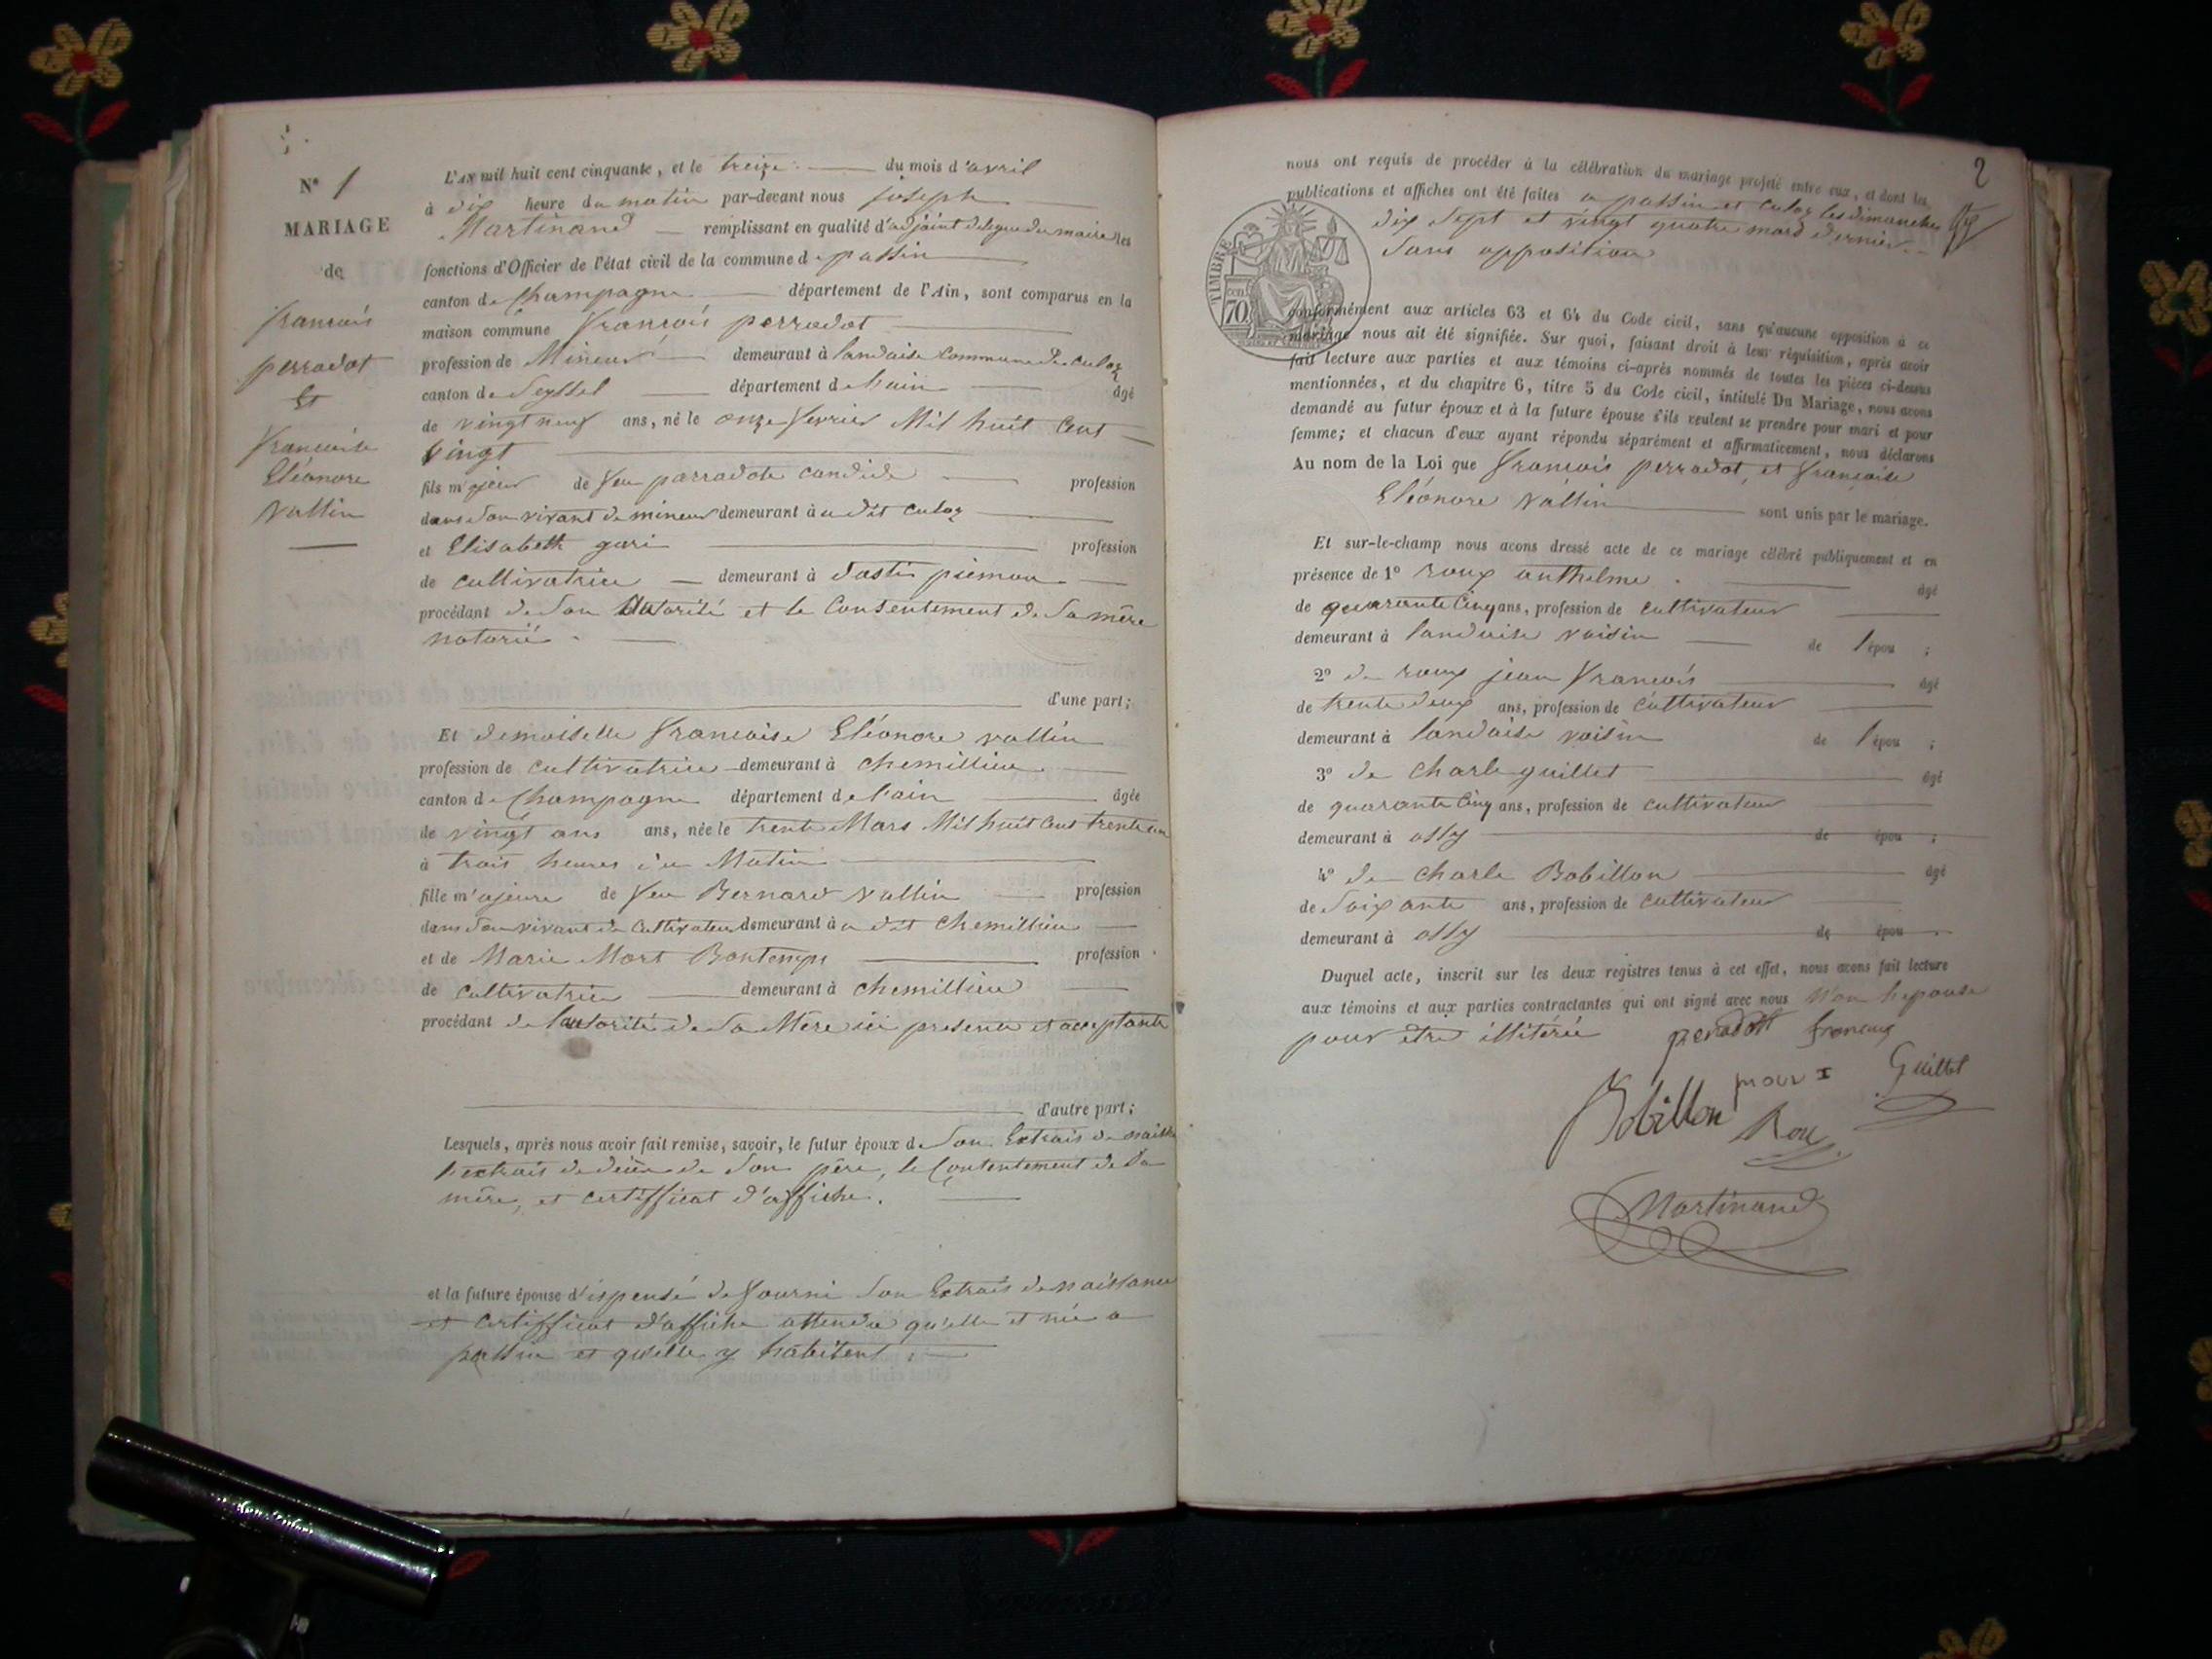 N° 1
MARIAGE
de
francois
perradot
Et
francoise
Eléonore
vallin
L'AN mil huit cent cinquante, et le treize du mois d'avril
à dix heure du matin par-devant nous joseph
Martinand remplissant en qualité d'adjoint delegue du maire les
fonctions d'Officier de l'état civil de la commune de passin
canton de Champagne département de l'Ain, sont comparus en la
maison commune francois perradot
profession de Mineur demeurant à landaise commune de culoz
canton de Seyssel département de l'ain âgé
de vingt neuf ans, né le onze fevrier Mil huit Cent
vingt
fils majeur de feu parradote candide profession
dans son vivant de mineur demeurant à u dit culoz
et Elisabeth gari profession
de cultivatrice demeurant à piemon
procédant de son Autorité et le Consentement de Sa mère
notorié
d'une part;
Et demoiselle francoise Eléonore vallin
profession de cultivatrice demeurant à chemillieu
canton de Champagne département de l'ain âgée
de vingt ans ans, née le trente Mars Mil huit Cent trente un
à trois heures du Matin
fille m'ajeure de feu Bernard vallin profession
dans son vivant de Cultivateur demeurant à u dit chemillieu
et de Marie Mort Bontemps profession
de cultivatrice demeurant à chemillieu
procédant de l'autorité de Sa Mère ici presente et acceptante
d'autre part;
Lesquels, après nous avoir fait remise, savoir, le futur époux de Son Extrais de naiss
l'extrais de decés de Son père, le Contentement de Sa
mère, et certifficat d'affiche.
et la future épouse d'ispensé de fourni Son Extrais de naissance
et certifficat d'affiche attendu qu'elle et née a
passin et qu'elle y habitent
2
nous ont requis de procéder à la célébration du mariage projeté entre eux, et dont les
publications et affiches ont été faites a passin et culoz les dimanches
dix Sept et vingt quatre mars dernier
Sans opposition
TIMBRE
70 cen.
conformément aux articles 63 et 64 du Code civil, sans qu'aucune opposition à ce
mariage nous ait été signifiée. Sur quoi, faisant droit à leur réquisition, après avoir
fait lecture aux parties et aux témoins ci-après nommés de toutes les pièces ci-dessus
mentionnées, et du chapitre 6, titre 5 du Code civil, intitulé Du Mariage, nous avons
demandé au futur époux et à la future épouse s'ils veulent se prendre pour mari et pour
femme; et chacun d'eux ayant répondu séparément et affirmativement, nous déclarons
Au nom de la Loi que francois perradot, et francoise
Eléonore vallin sont unis par le mariage.
Et sur-le-champ nous avons dressé acte de ce mariage célébré publiquement et en
présence de 1° roux anthelme âgé
de quarante Cinq ans, profession de cultivateur
demeurant à landaise voisin de l'épou ;
2° de roux jean francois âgé
de trente deux ans, profession de cultivateur
demeurant à landaise voisin de l'épou ;
3° de charle guillet âgé
de quarante Cinq ans, profession de cultivateur
demeurant à ossy de épou ;
4° de charle Bobillon âgé
de Soixante ans, profession de cultivateur
demeurant à ossy de épou
Duquel acte, inscrit sur les deux registres tenus à cet effet, nous avons fait lecture
aux témoins et aux parties contractantes qui ont signé avec nous Non l'epouse
pour être illitérée perradott francois
Bobillon Roux Guillet
Martinand